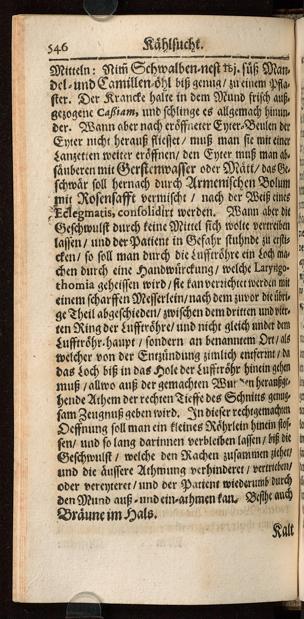 546 Kählsucht.
Mitteln: Nim̃ Schwalben-nest ℔j. süß Man-
del- und Camillen-öhl biß genug / zu einem Pfla-
ster. Der Krancke halte in dem Mund frisch auß-
gezogene Cassiam, und schlinge es allgemach hinun-
der. Wann aber nach eröffneter Eyter-Beulen der
Eyter nicht herauß fliesset / muß man sie mit einer
Lanzetten weiter eröffnen / den Eyter muß man ab-
säuberen mit Gerstenwasser oder Mätt / das Ge-
schwär soll hernach durch Armenischen Bolum
mit Rosensafft vermischt / nach der Weiß eines
Eclegmatis, consolidirt werden. Wann aber die
Geschwulst durch keine Mittel sich wolte vertreiben
lassen / und der Patient in Gefahr stuhnde zu ersti-
cken / so soll man durch die Lufftröhre ein Loch ma-
chen durch eine Handwürckung / welche Laryngo-
thomia geheissen wird / sie kan verrichtet werden mit
einem scharffen Messerlein / nach dem zuvor die übri-
ge Theil abgeschieden / zwischen dem dritten und vier-
ten Ring der Lufftröhre / und nicht gleich under dem
Lufftröhr-haupt / sondern an benanntem Ort / als
welcher von der Entzündung zimlich entfernt / da
das Loch biß in das Hole der Lufftröhr hinein gehen
muß / allwo auß der gemachten herauß ge-
hende Athem der rechten Tieffe des Schnitts genug-
sam Zeugnuß geben wird. In dieser rechtgemachten
Oeffnung soll man ein kleines Röhrlein hinein stos-
sen / und so lang darinnen verbleiben lassen / biß die
Geschwulst / welche den Rachen zusammen ziehet /
und die äussere Athmung verhinderet / vertrieben /
oder vereyteret / und der Patient wiederumb durch
den Mund auß- und ein-athmen kan. Besihe auch
Bräune im Hals.
Kalt